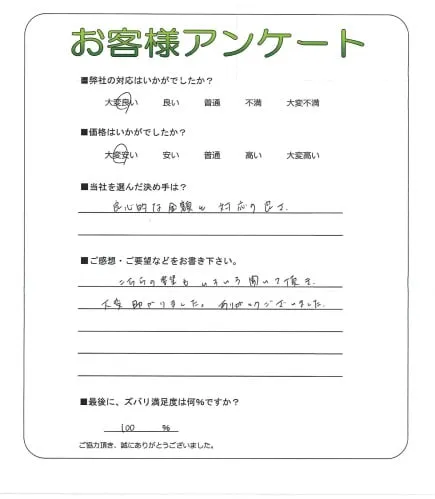 お客様アンケート
■弊社の対応はいかがでしたか？
大変良い 良い 普通 不満 大変不満
■価格はいかがでしたか？
大変安い 安い 普通 高い 大変高い
■当社を選んだ決め手は？
良心的な金額と対応の良さ.
■ご感想・ご要望などをお書き下さい。
こちらの要望もいろいろ聞いて頂き.
大変助かりました。ありがとうございました.
■最後に、ズバリ満足度は何％ですか？
100 ％
ご協力頂き、誠にありがとうございました。